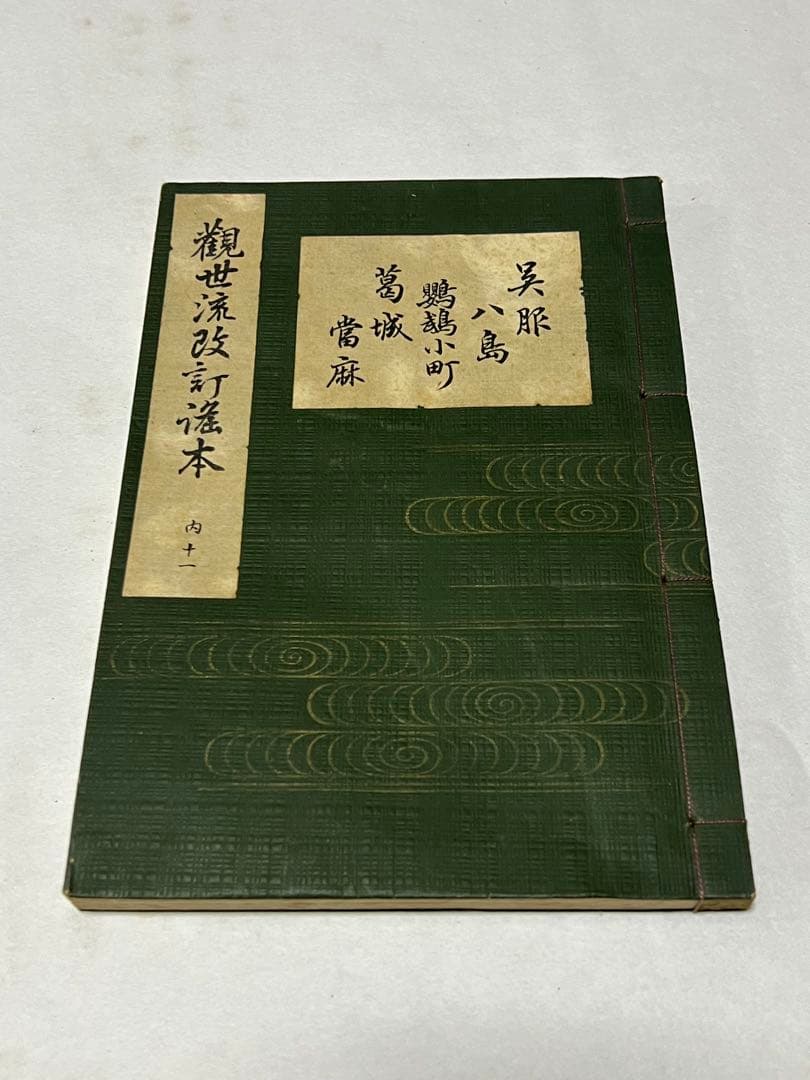 呉服
八島
鸚鵡小町
葛城
當麻
觀世流改訂謡本
内十一